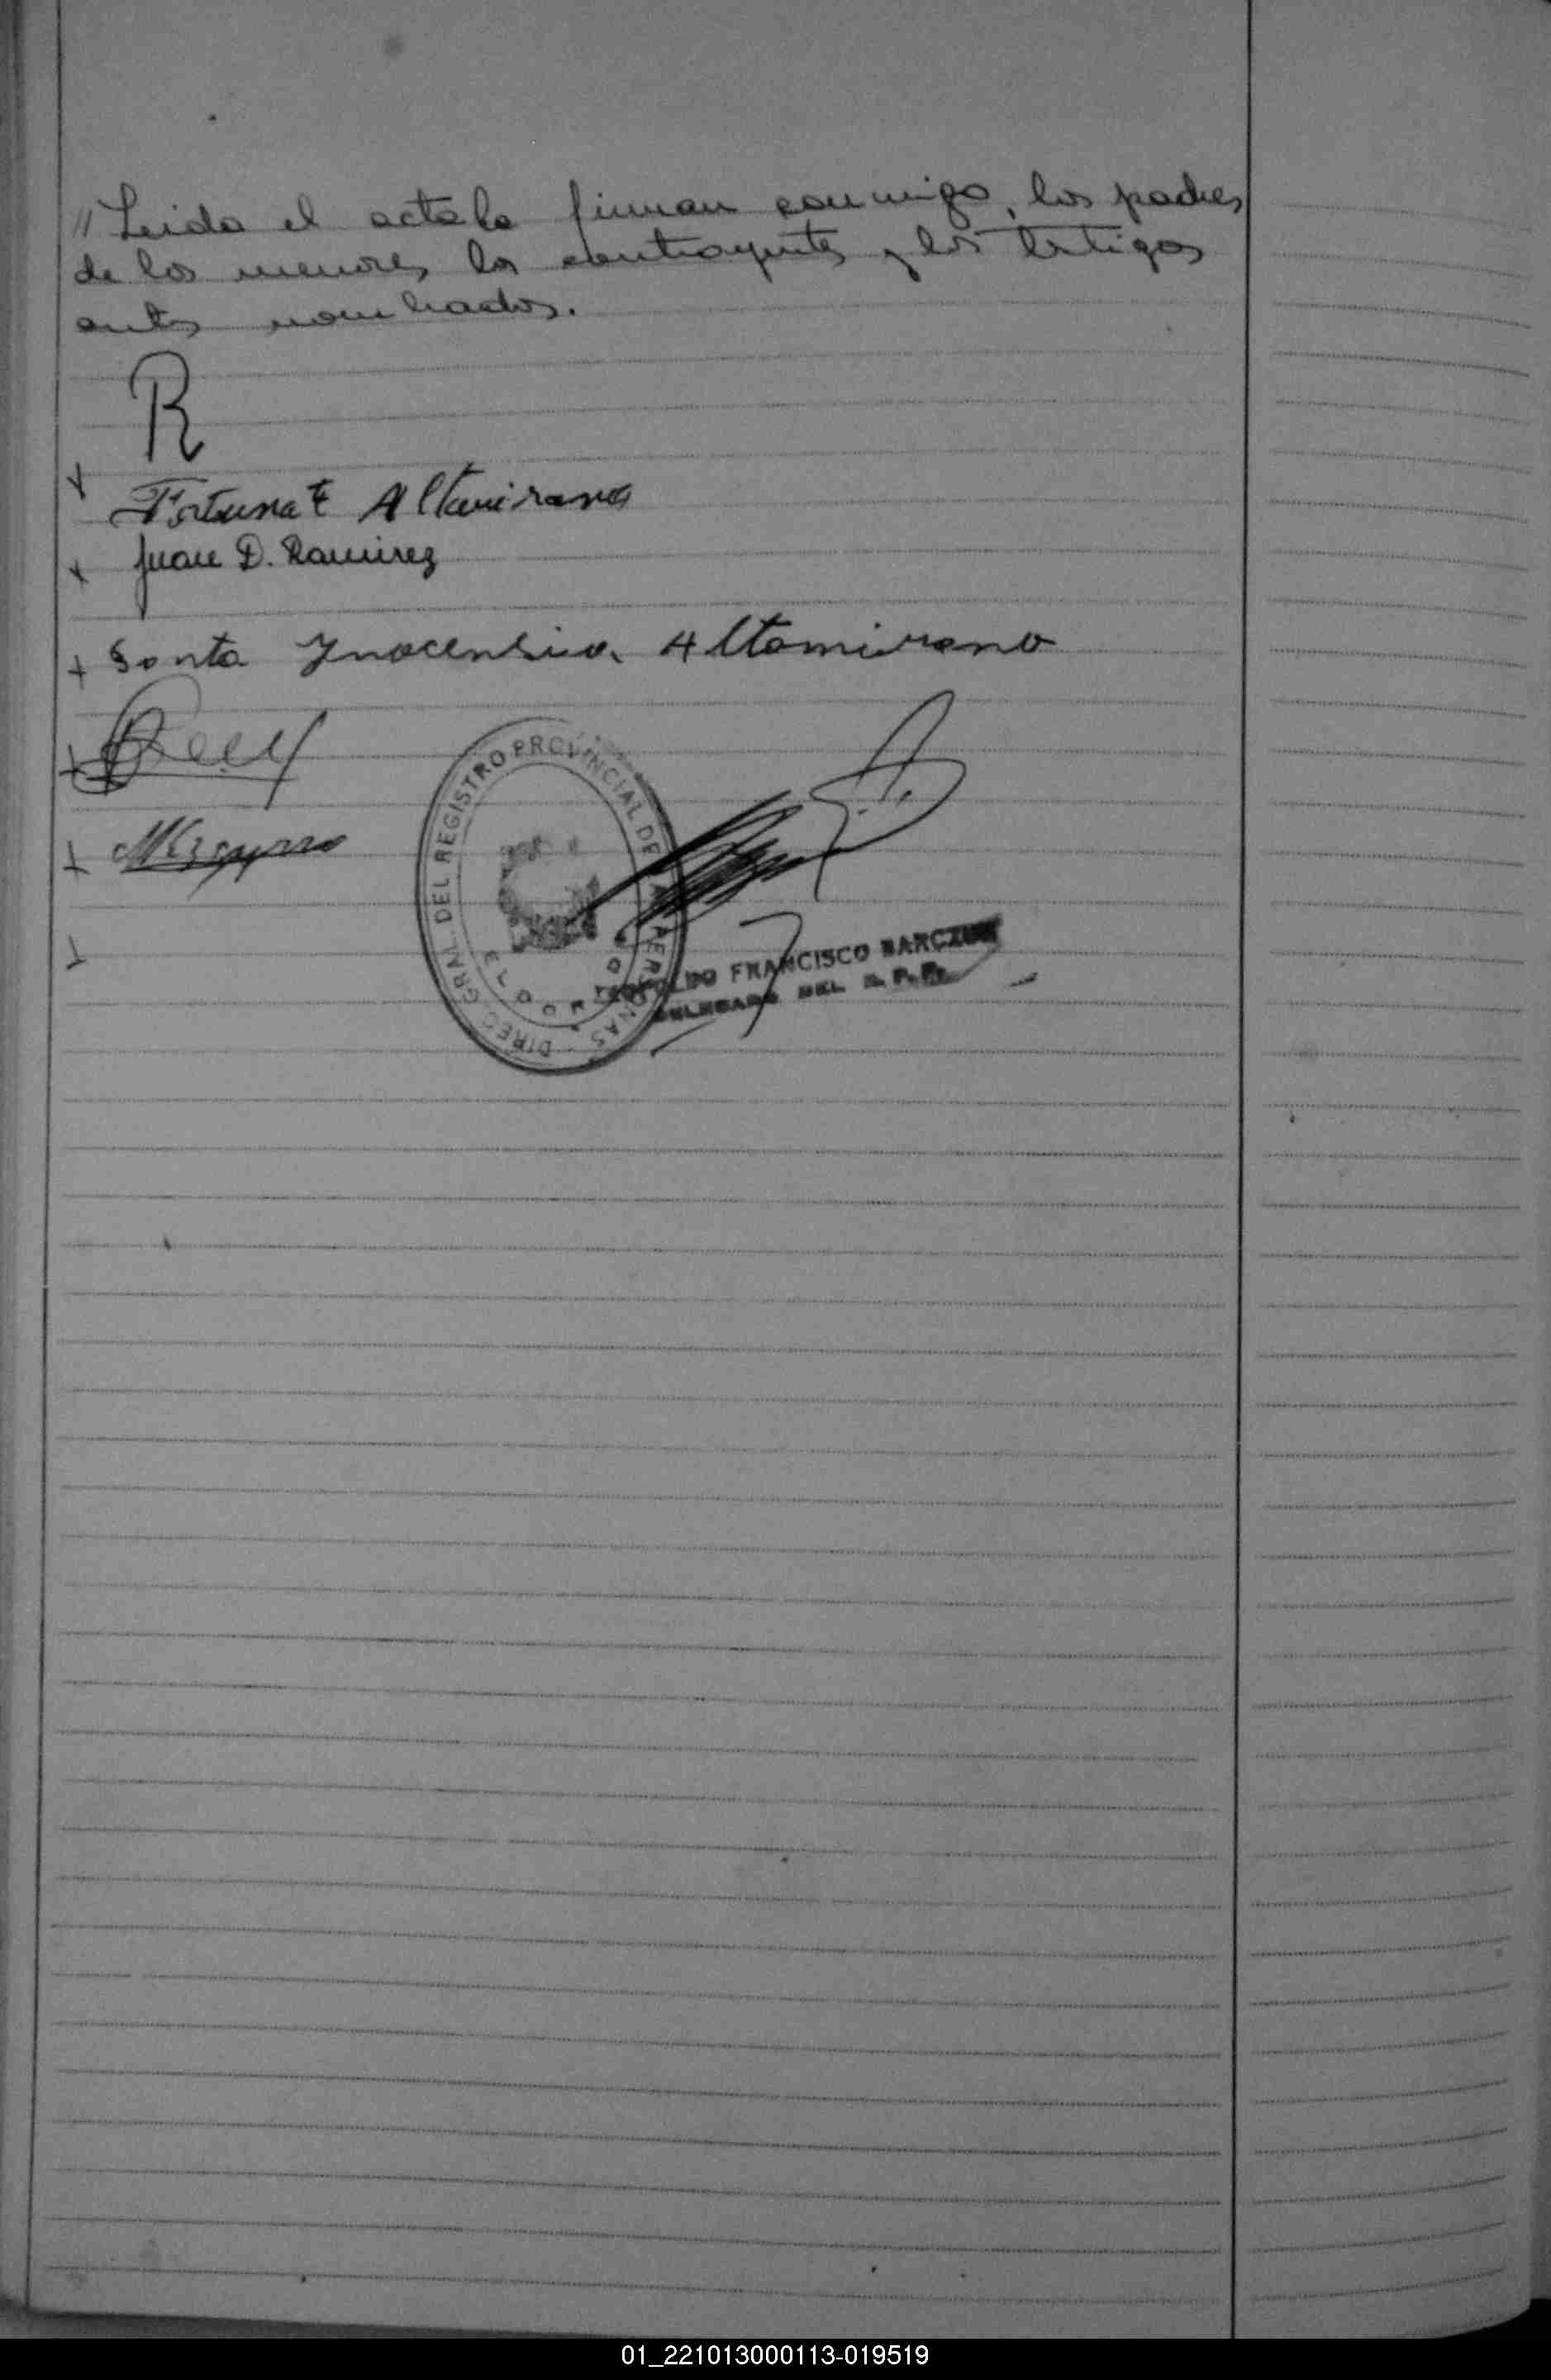 // Leida el acta la firman conmigo, los padres
de los menores los contrayentes y los testigos
antes nombrados.
R
Fortunato Altamirano
Juan D. Ramirez
Santa Ynocensia Altamirano
DIREC. GRAL. DEL REGISTRO PROVINCIAL DE LAS PERSONAS
LEOPOLDO FRANCISCO
DELEGADO DEL R. P. P.
01_221013000113-019519